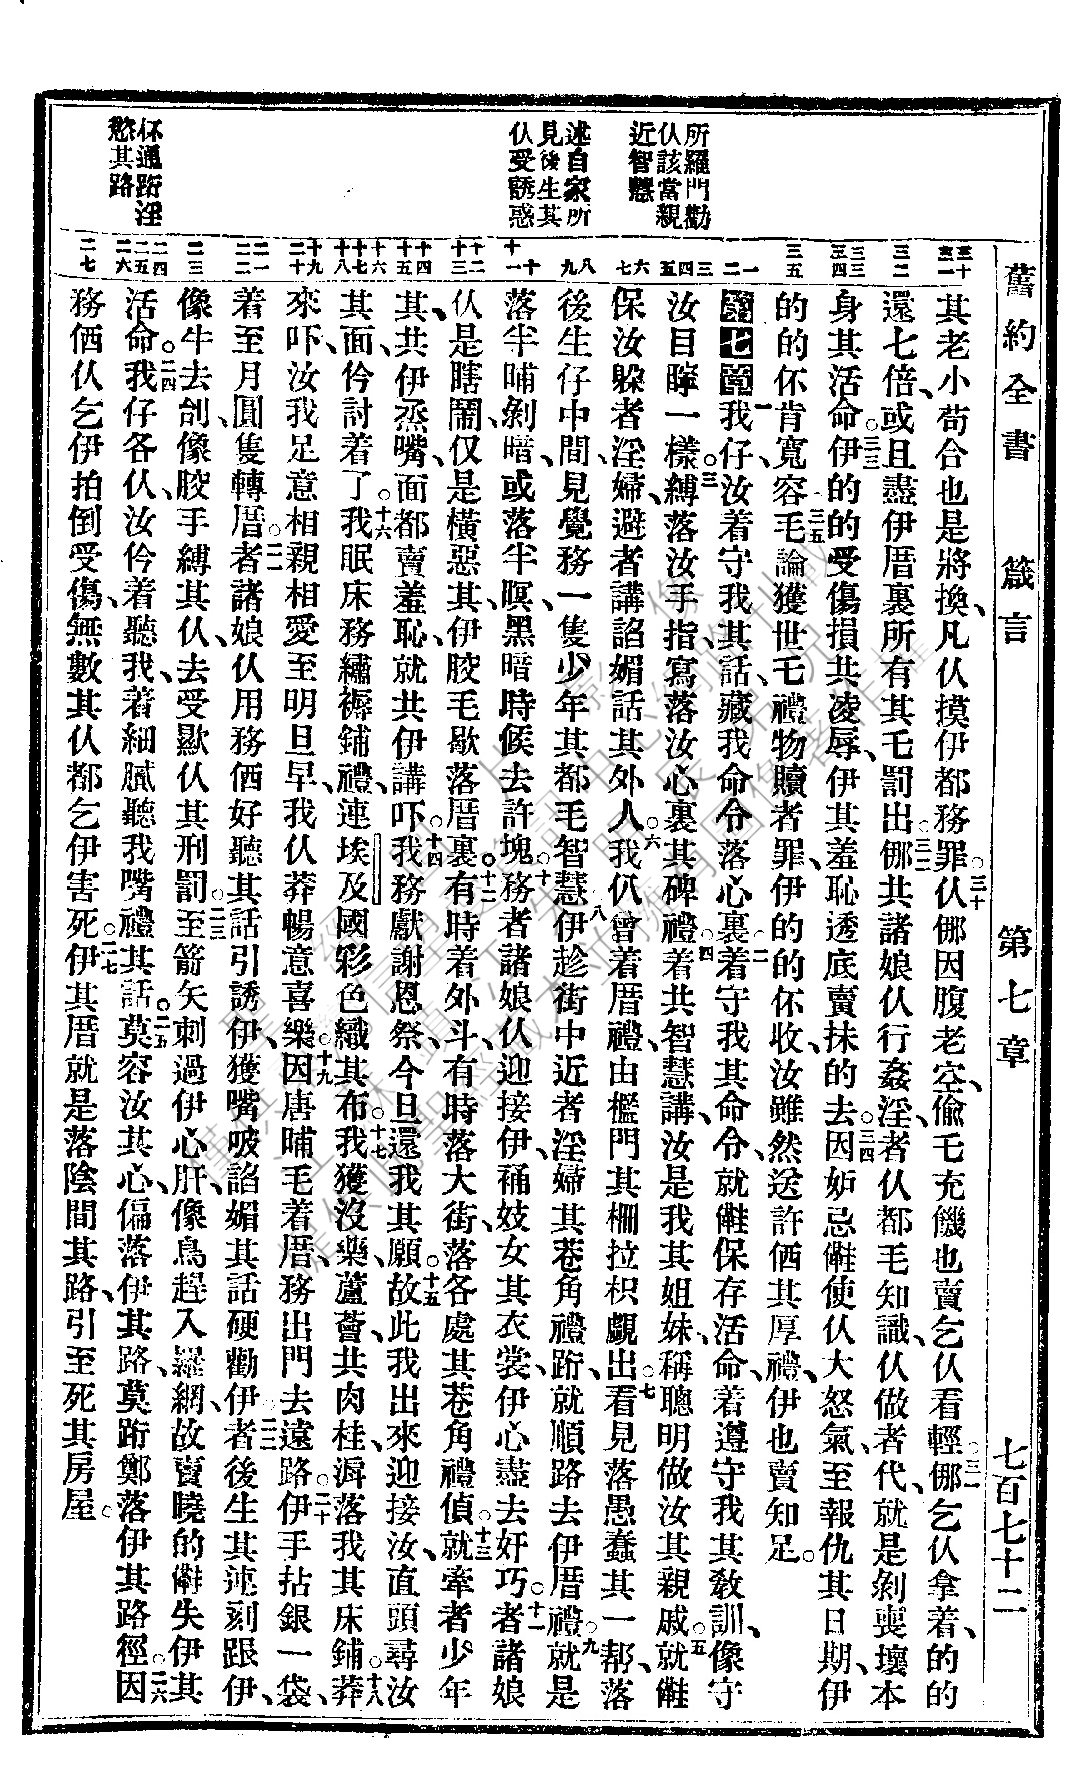 舊約全書 箴言 第七章 七百七十二
所羅門勸
仫該當親
近智慧
述自家所
見後生其
仫受誘惑
伓通跨淫
慾其路
其老小苟合也是將換、凡仫摸伊都務罪。三十仫挪因腹老空、偷乇充饑也賣乞仫看輕。三一挪乞仫拿着的的
還七倍、或且盡伊厝裏所有其乇罰出。三二挪共諸娘仫行姦淫、者仫都毛知識、仫做者代、就是剝喪壞本
身其活命。三三伊的的受傷損共凌辱、伊其羞恥透底賣抹的去。三四因妒忌𠆧使仫大怒氣、至報仇其日期、伊
的的伓肯寬容。三五毛論獲世乇禮物贖者罪、伊的的伓收、汝雖然送許価其厚禮、伊也賣知足。
第七章一我仔、汝着守我其話、藏我命令落心裏。二着守我其命令、就𠆧保存活命、着遵守我其教訓、像守
汝目瞳一樣。三縛落汝手指、寫落汝心裏其碑禮。四着共智慧講、汝是我其姐妹、稱聰明做汝其親戚。五就𠆧
保汝躲者淫婦、避者講諂媚話其外人。六我仈曾着厝禮、由檻門其柵拉枳覷出。七看見落愚蠢其一帮、落
後生仔中間、見覺務一隻少年其都毛智慧。八伊趁街中近者淫婦其巷角禮跨、就順路去伊厝禮。九就是
落半晡剝暗、或落半暝、黑暗時候去許塊。十務者諸娘仫迎接伊、裲妓女其衣裳、伊心盡去奸巧。十一者諸娘
仫是瞎鬧、仅是橫惡其、伊骹毛歇落厝裏。十二有時着外斗、有時落大街、落各處其巷角禮偵。十三就牽者少年
其、共伊烝嘴、面都賣羞恥、就共伊講吓。十四我務獻謝恩祭、今旦還我其願。十五故此我出來迎接汝、直頭尋汝
其面、仱討着了。十六我眠床務繡褥鋪禮、連埃及國彩色織其布。十七我獲沒藥、蘆薈、共肉桂、渳落我其床鋪。十八莽
來吓、汝我足意相親相愛至明旦早、我仫莽暢意喜樂。十九因唐晡毛着厝、務出門去遠路。二十伊手拈銀一袋、
着至月圓隻轉厝。二一者諸娘仫用務価好聽其話引誘伊、獲嘴唆諂媚其話硬勸伊。二二者後生其連刻跟伊、
像牛去刣、像骹手縛其仫、去受厭仫其刑罰。二三至箭矢刺過伊心肝、像鳥趕入羅網、故賣曉的𠆧失伊其
活命。二四我仔各仫、汝仱着聽我、着細膩聽我嘴禮其話。二五莫容汝其心偏落伊其路、莫跨鄭落伊其路徑。二六因
務価仫乞伊拍倒受傷、無數其仫都乞伊害死。二七伊其厝就是落陰間其路、引至死其房屋。